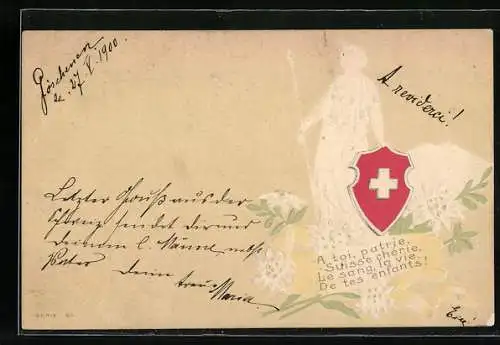 Göschenen
d. 27. V. 1900.
A reviderci!
Letzter Gruß aus der
Schweiz sendet dir und
deinem l. Männe
Deine treue
Maria
A toi, patrie,
Suisse chérie,
Le sang, la vie,
De tes enfants!